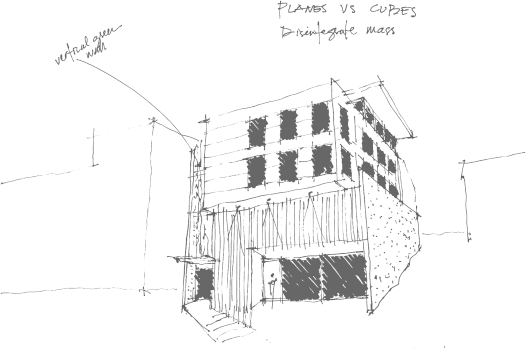 PLANES VS CUBES
Disintegrate mass
vertical green
wall